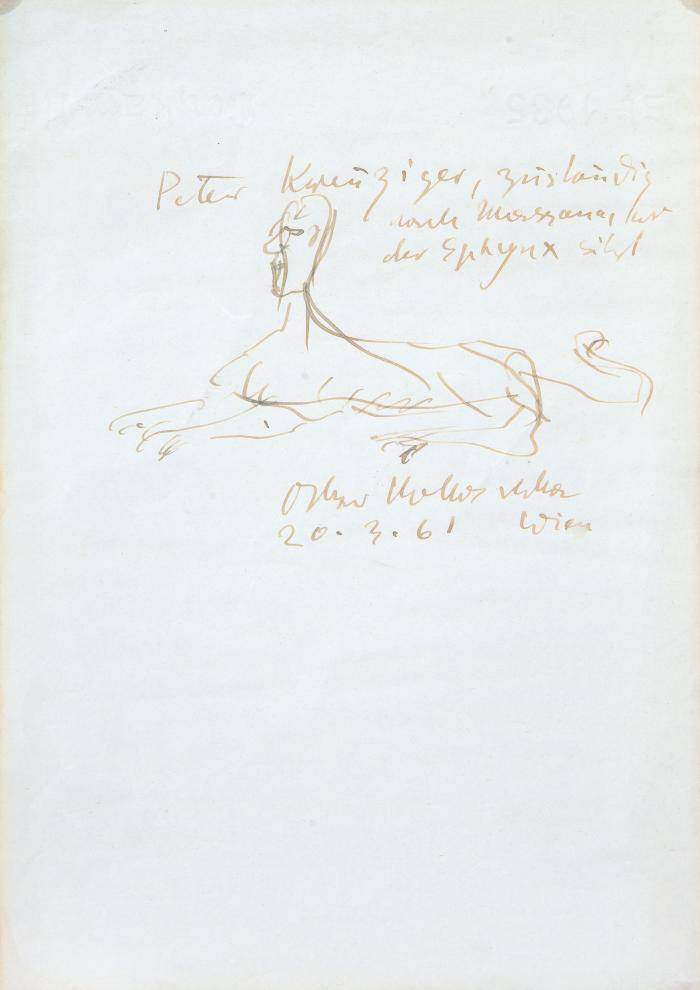 Peter Kreuziger, zuständig
nach Massana, wo
der Sphynx sitzt
Oskar Kokoschka
20.3.61 Wien